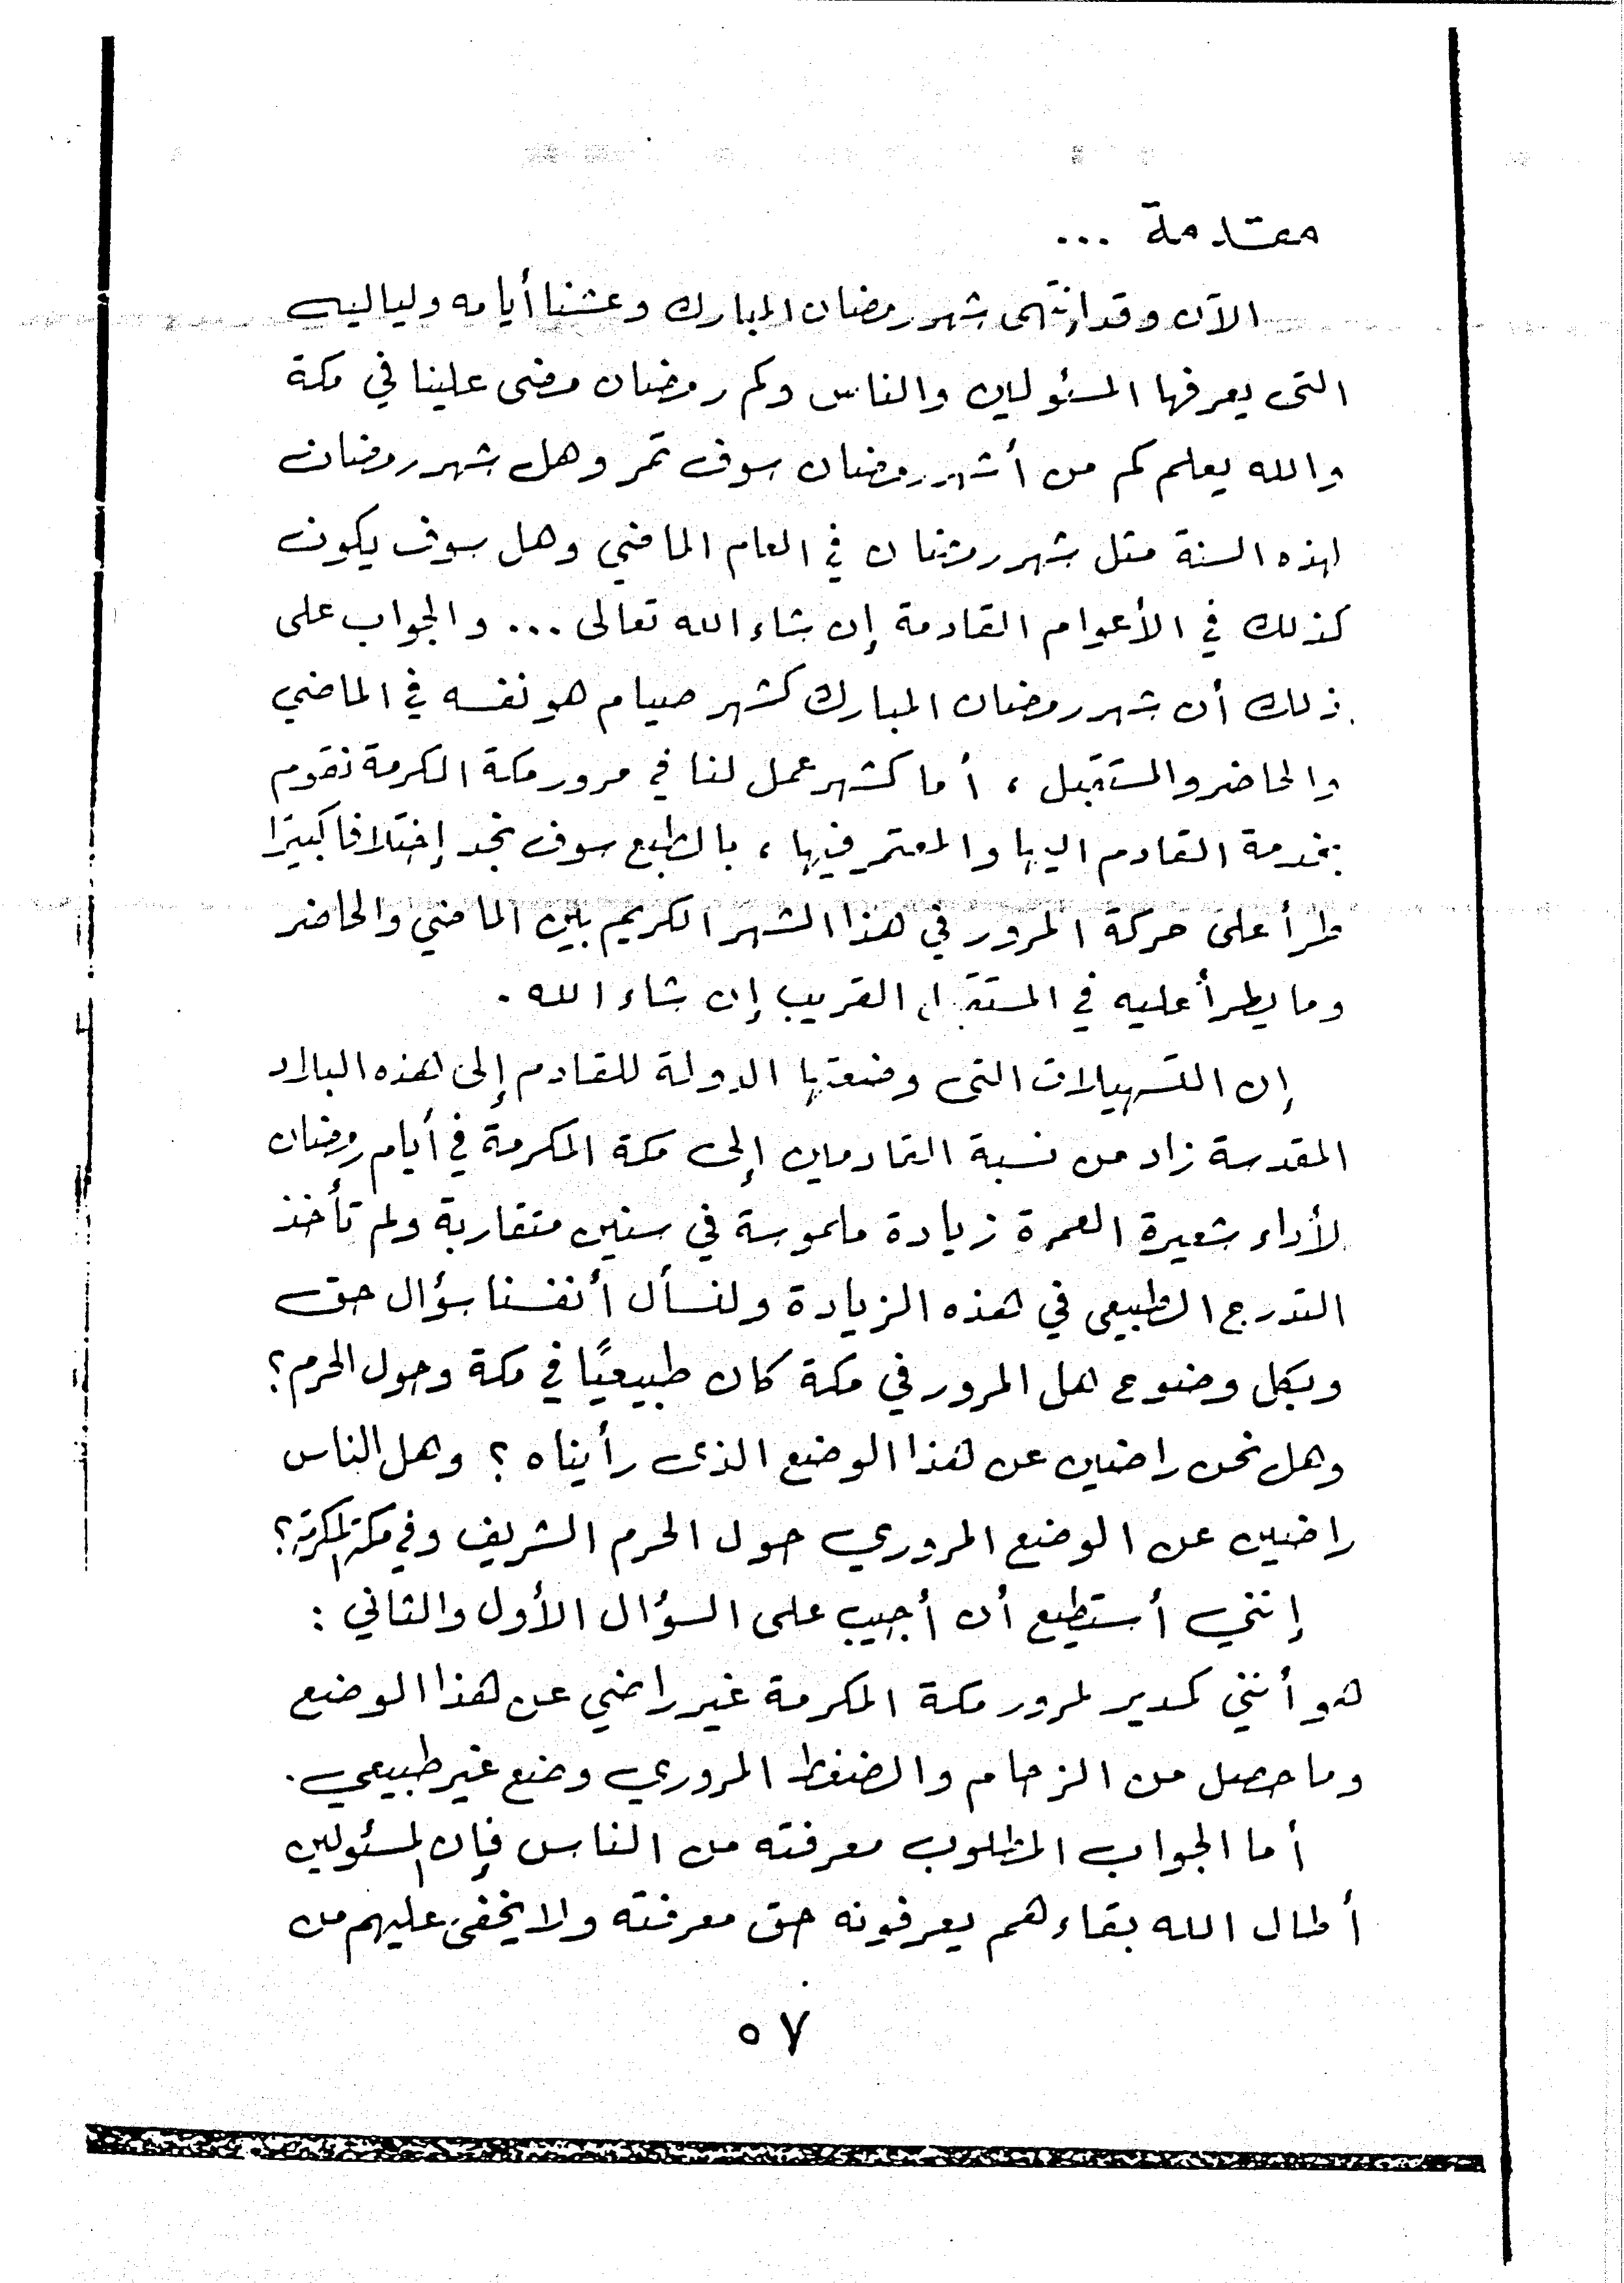 مقدمة ...
الآن وقد إنتهى شهر رمضان المبارك وعشنا أيامه ولياليه
التى يعرفها المسئولين والناس وكم رمضان مضى علينا في مكة
والله يعلم كم من أشهر رمضان سوف تمر وهل شهر رمضان
لهذه السنة مثل شهر رمضان في العام الماضي وهل سوف يكون
كذلك في الأعوام القادمة إن شاء الله تعالى ... والجواب على
ذلك أن شهر رمضان المبارك كشهر صيام هو نفسه في الماضي
والحاضر والمستقبل ، أما كشهر عمل لنا في مرور مكة المكرمة نقوم
بخدمة القادم اليها والمعتمر فيها ، بالطبع سوف نجد إختلافا كبيرًا
طرأ على حركة المرور في هذا الشهر الكريم بين الماضي والحاضر
وما يطرأ عليه في المستقبل القريب إن شاء الله .
إن التسهيلات التى وضعتها الدولة للقادم إلى هذه البلاد
المقدسة زاد من نسبة القادمين إلى مكة المكرمة في أيام رمضان
لأداء شعيرة العمرة زيادة ملموسة في سنين متقاربة ولم تأخذ
التدرج الطبيعى في هذه الزيادة ولنسأل أنفسنا سؤال حق
وبكل وضوح هل المرور في مكة كان طبيعيًا في مكة وحول الحرم ؟
وهل نحن راضين عن هذا الوضع الذى رأيناه ؟ وهل الناس
راضين عن الوضع المروري حول الحرم الشريف وفي مكة المكرمة ؟
إنني أستطيع أن أجيب على السؤال الأول والثاني :
هو أنني كمدير لمرور مكة المكرمة غير راضي عن هذا الوضع
وما حصل من الزحام والضغط المروري وضع غير طبيعي .
أما الجواب المطلوب معرفته من الناس فإن المسئولين
أطال الله بقاءهم يعرفونه حق معرفته ولا يخفى عليهم من
٥٧